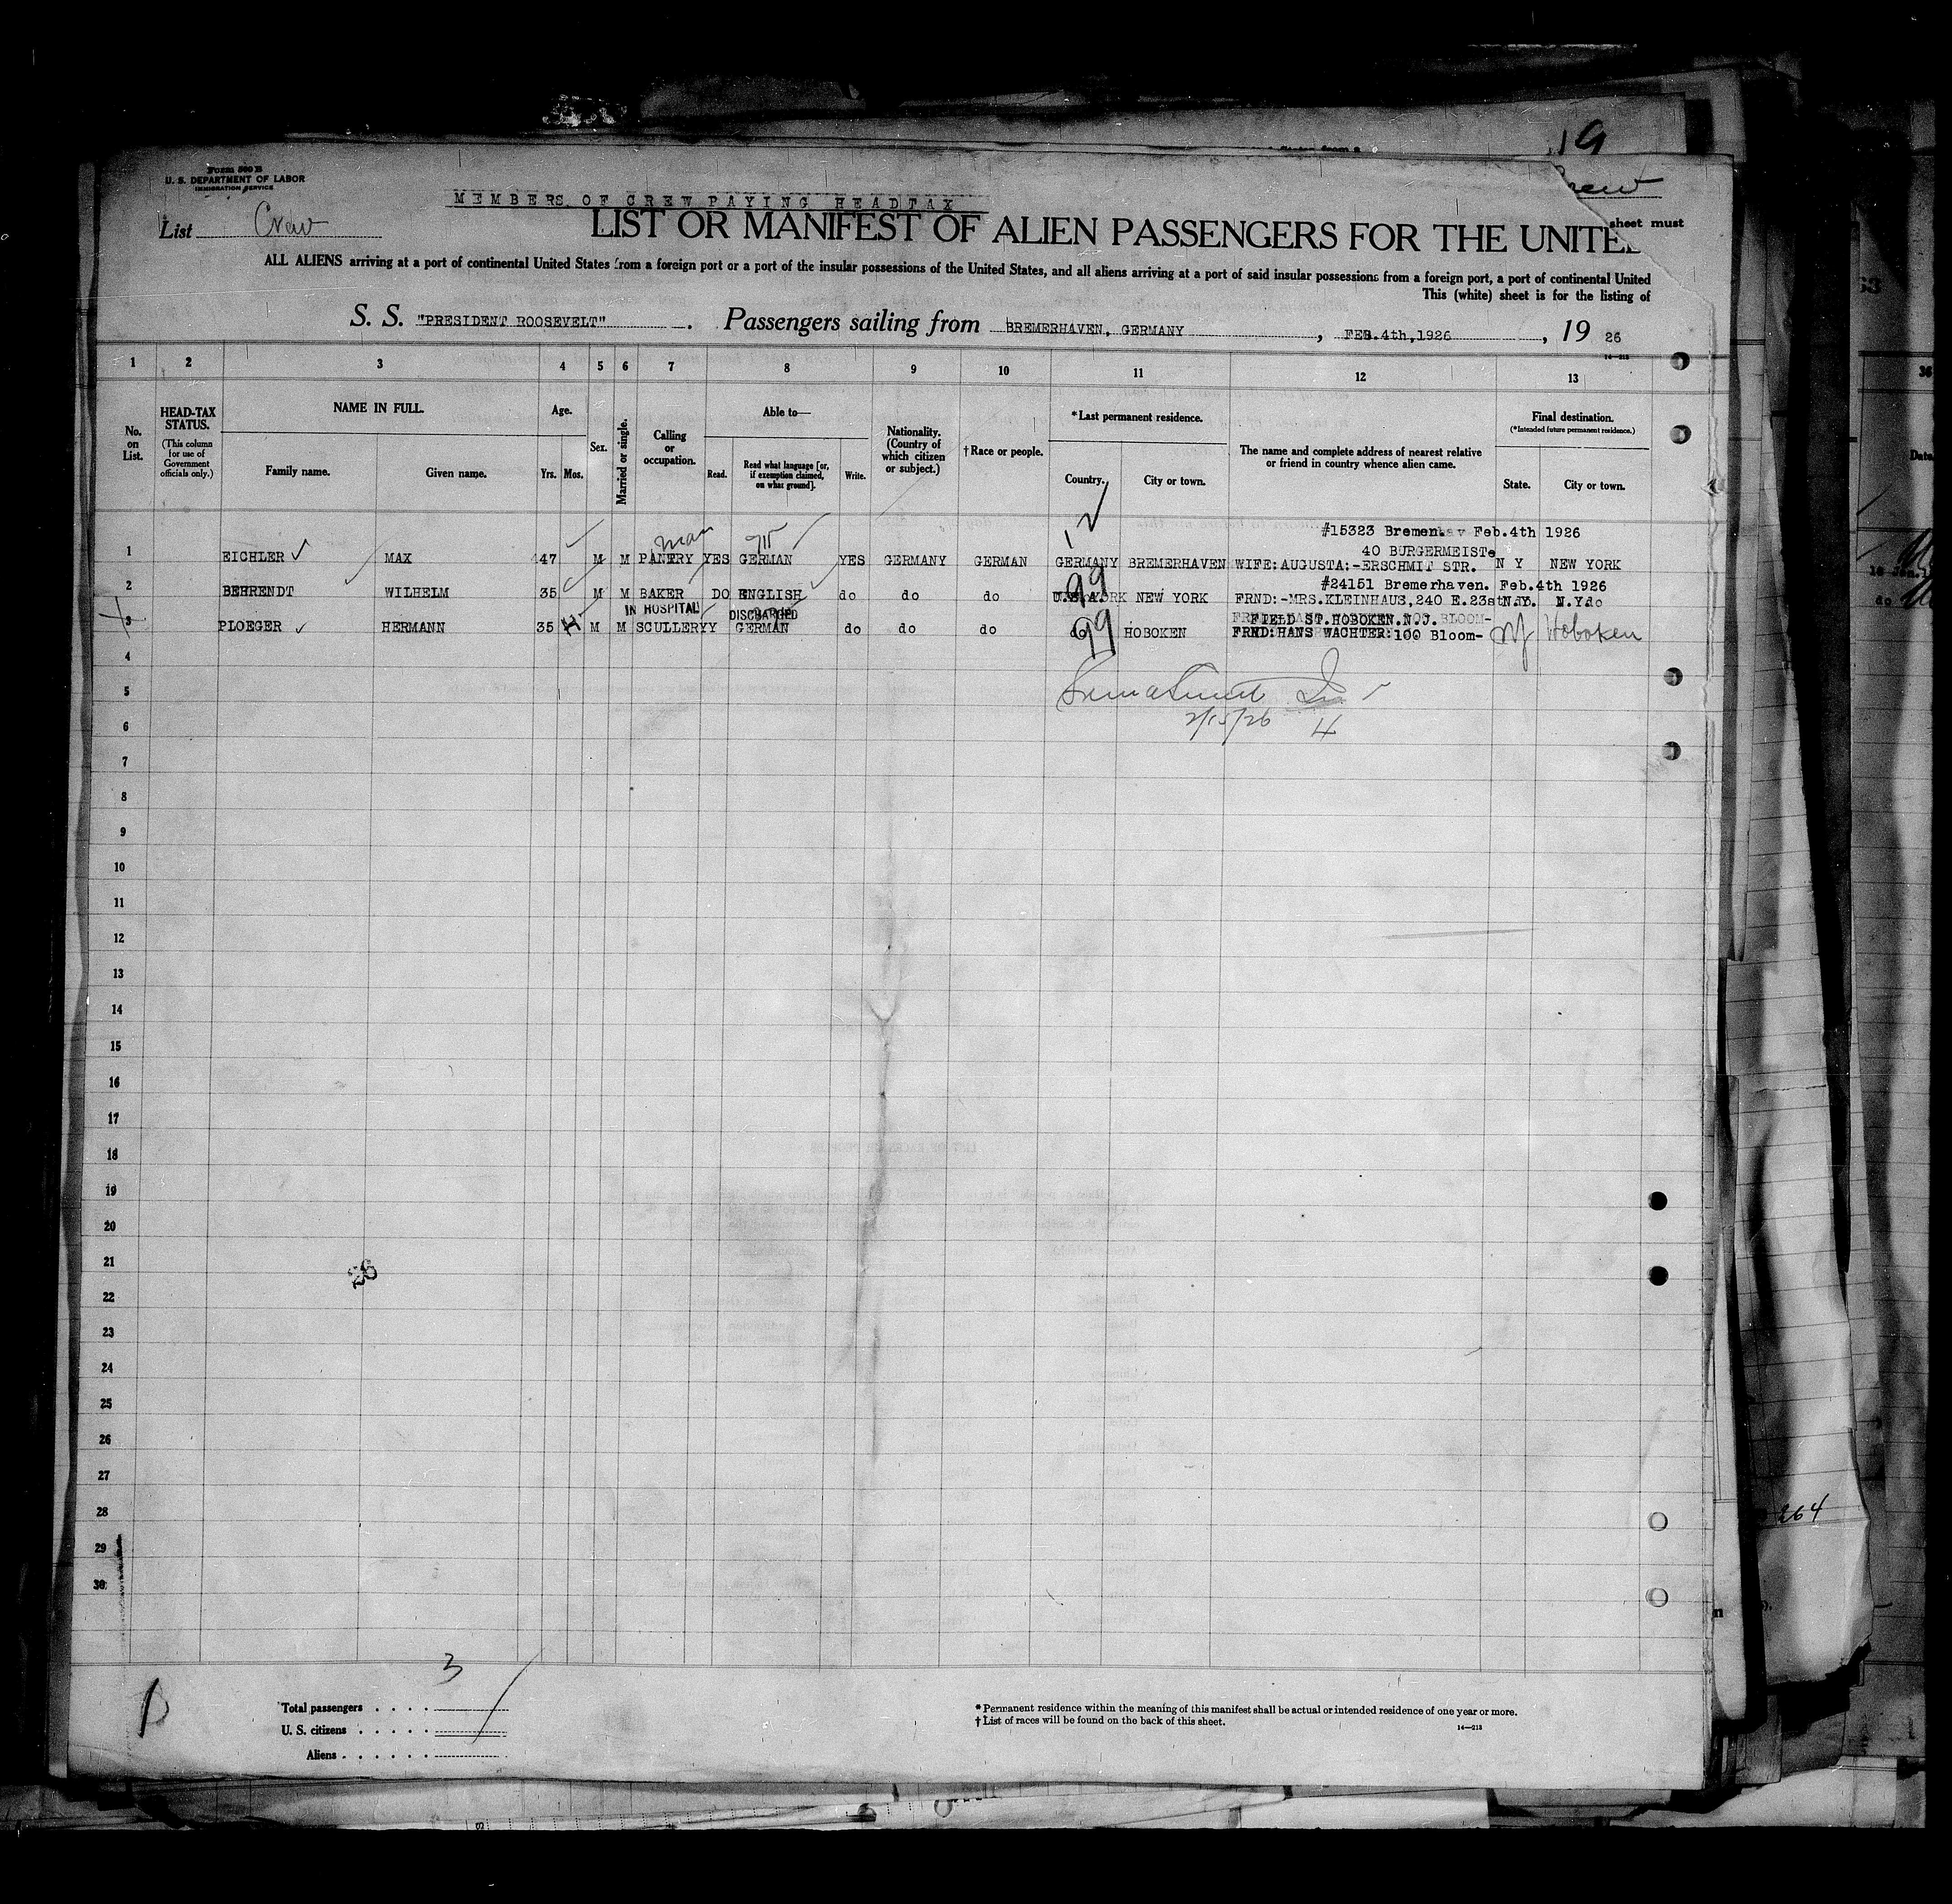 19
Form 500 B
U. S. DEPARTMENT OF LABOR
IMMIGRATION SERVICE
MEMBERS OF CREW PAYING HEADTAX
List Crew
LIST OR MANIFEST OF ALIEN PASSENGERS FOR THE UNITE
sheet must
ALL ALIENS arriving at a port of continental United States from a foreign port or a port of the insular possessions of the United States, and all aliens arriving at a port of said insular possessions from a foreign port, a port of continental United
This (white) sheet is for the listing of
S. S. "PRESIDENT ROOSEVELT" . Passengers sailing from BREMERHAVEN, GERMANY , FEB.4th,1926 , 19 26
14—213
1 2 3 4 5 6 7 8 9 10 11 12 13
No. on List.
HEAD-TAX STATUS.
(This column for use of Government officials only.)
NAME IN FULL.
Family name. Given name.
Age.
Yrs. Mos.
Sex.
Married or single.
Calling or occupation.
Able to—
Read. Read what language [or, if exemption claimed, on what ground]. Write.
Nationality. (Country of which citizen or subject.)
†Race or people.
*Last permanent residence.
Country. City or town.
The name and complete address of nearest relative or friend in country whence alien came.
Final destination.
(*Intended future permanent residence.)
State. City or town.
#15323 Bremen Feb.4th 1926
man
40 BURGERMEISTe
1 EICHLER MAX 47 M M PANTRY YES GERMAN YES GERMANY GERMAN GERMANY BREMERHAVEN WIFE:AUGUSTA:-ERSCHMIT STR. N Y NEW YORK
#24151 Bremerhaven. Feb.4th 1926
2 BEHRENDT WILHELM 35 M M BAKER DO ENGLISH do do do 99 NEW YORK FRND:-MRS.KLEINHAUS,240 E.23st N.Y. N.Y.do
IN HOSPITAL DISCHARGED
FIELD ST.HOBOKEN.N.J.
3 PLOEGER HERMANN 35 M M SCULLERY Y GERMAN do do do do 99 HOBOKEN FRND:HANS WACHTER:100 Bloom- NJ Hoboken
4
5
2/15/26
6
7
8
9
10
11
12
13
14
15
16
17
18
19
20
21
26
22
23
24
25
26
27
28
29
30
264
3
Total passengers
U. S. citizens
Aliens
*Permanent residence within the meaning of this manifest shall be actual or intended residence of one year or more.
†List of races will be found on the back of this sheet.
14—213